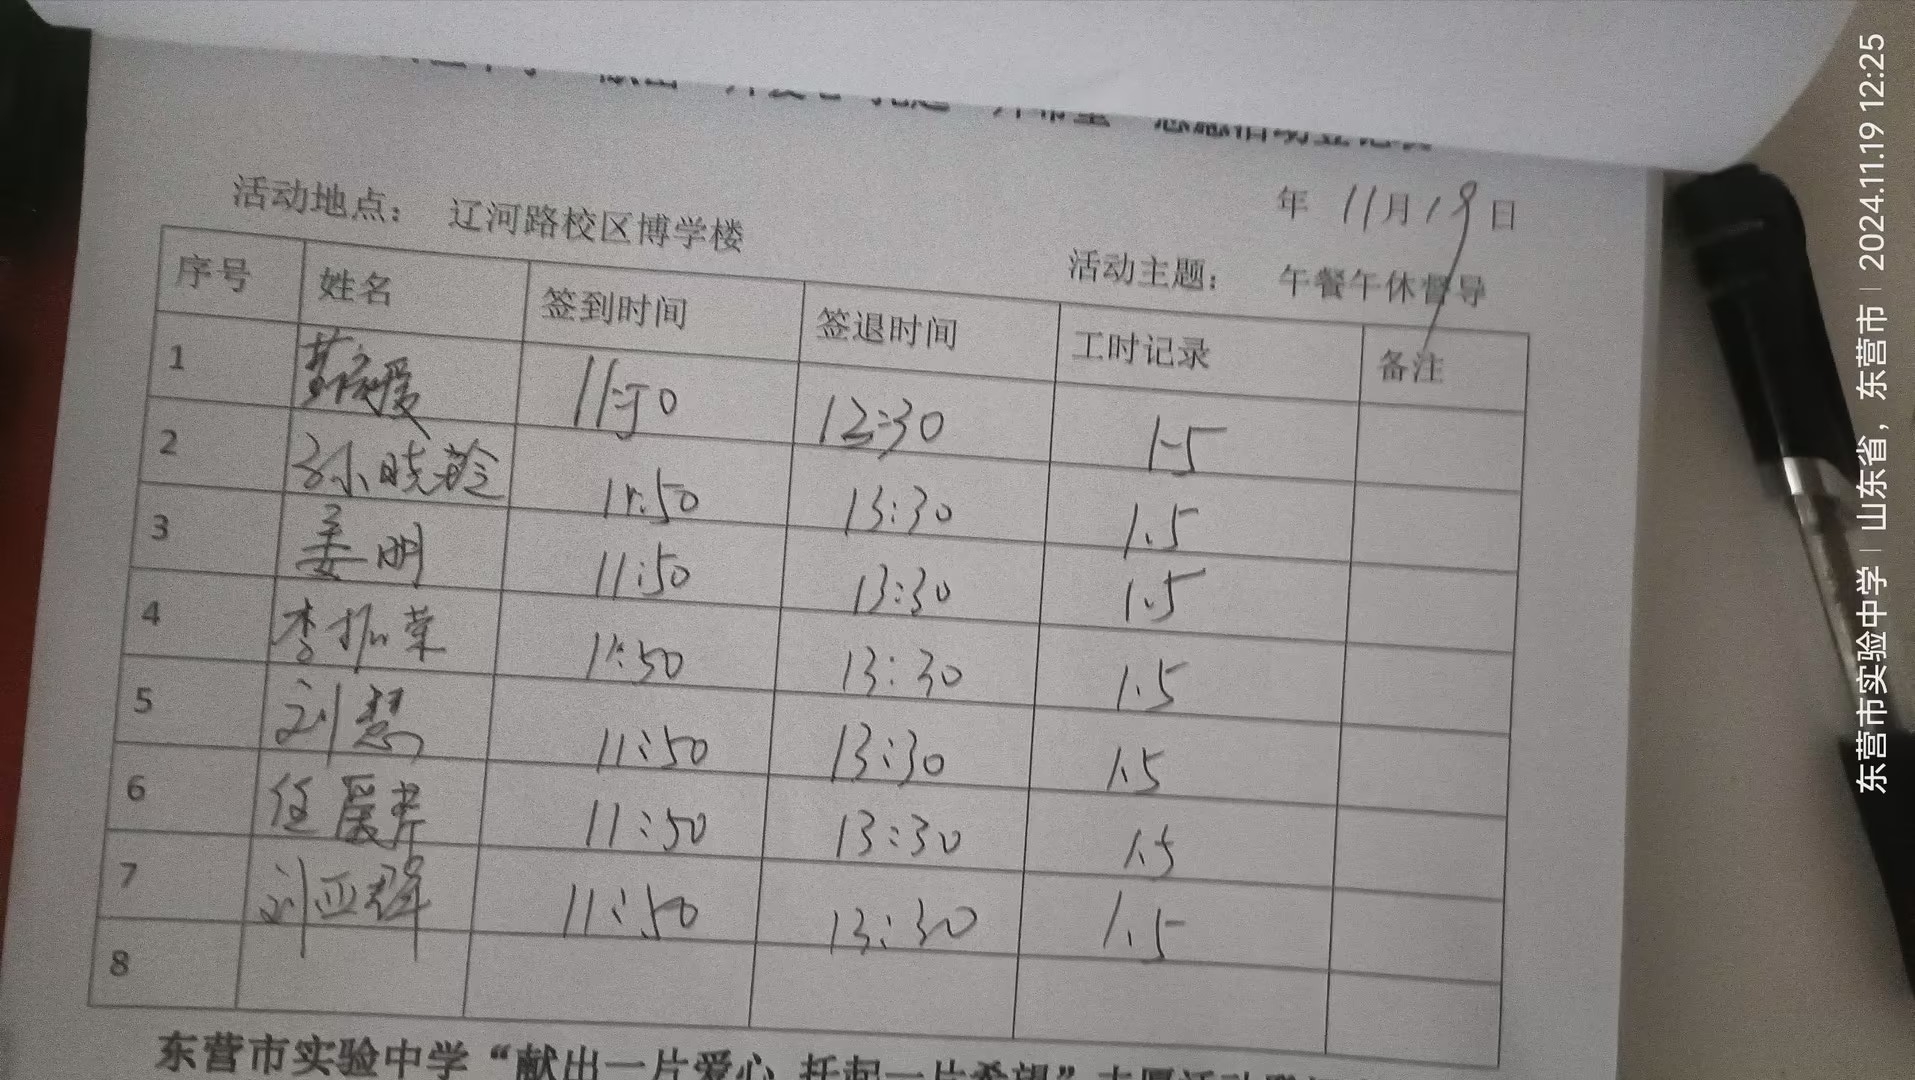 年 11月19日
活动地点： 辽河路校区博学楼
活动主题： 午餐午休督导
序号 姓名 签到时间 签退时间 工时记录 备注
1 11:50 12:30 1.5
2 孙晓 11:50 13:30 1.5
3 姜明 11:50 13:30 1.5
4 李振荣 11:50 13:30 1.5
5 刘慧 11:50 13:30 1.5
6 任 11:50 13:30 1.5
7 刘亚 11:50 13:30 1.5
8
东营市实验中学“献出一片爱心 托起一片希望”志愿活动
东营市实验中学 | 山东省，东营市 | 2024.11.19 12:25